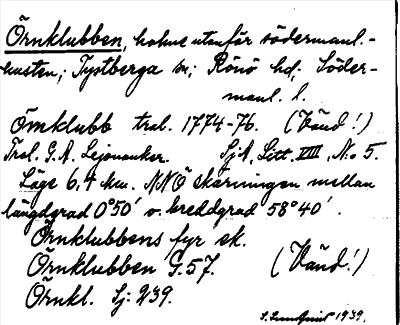 Örnklubben, holme utanför södermanl.-
kusten; Tystberga sn; Rönö hd. Söder-
manl. l.
Örnklubb tral. 1774-76. (Vänd!)
Trol. G.A. Lejonanker. SjA, Litt. VIII, No 5.
Läge 6,4 km. NNÖ skärningen mellan
längdgrad 0°50' o. breddgrad 58°40'.
Örnklubbens fyr sk.
Örnklubben G.57. (Vänd!)
Örnkl. Sj: 239.
1939.